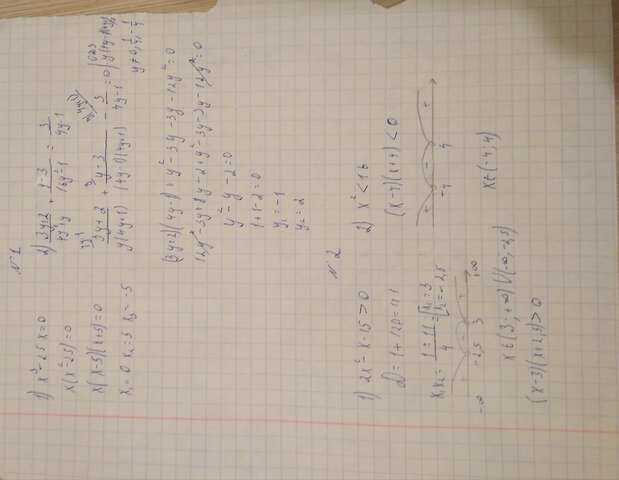 N 1
1) x³ - 25x = 0
x(x² - 25) = 0
x(x-5)(x+5) = 0
x = 0 x₂ = 5 x₃ = -5
2) (3y+2)/(4y²+y) + (y-3)/(16y²-1) = 3/(4y-1)
(3y+2)/(y(4y+1)) + (y-3)/((4y-1)(4y+1)) - 3/(4y-1) = 0
y ≠ 0, 1/4, -1/4
(3y+2)(4y-1) + y² - 3y - 3y - 12y² = 0
12y² - 3y + 8y - 2 + y² - 3y - 3y - 12y² = 0
y² - y - 2 = 0
1 + 1 - 2 = 0
y₁ = -1
y₂ = 2
N 2
1) 2x² - x - 15 > 0
D = 1 + 120 = 121
x₁x₂ = (1 ± 11)/4 = [x₁ = 3 x₂ = -2,5
-∞ -2,5 3 +∞
x ∈ (3; +∞) ∪ (-∞, -2,5)
(x-3)(x+2,5) > 0
2) x² < 16
(x-4)(x+4) < 0
+ - +
-4 4
x ∈ (-4; 4)